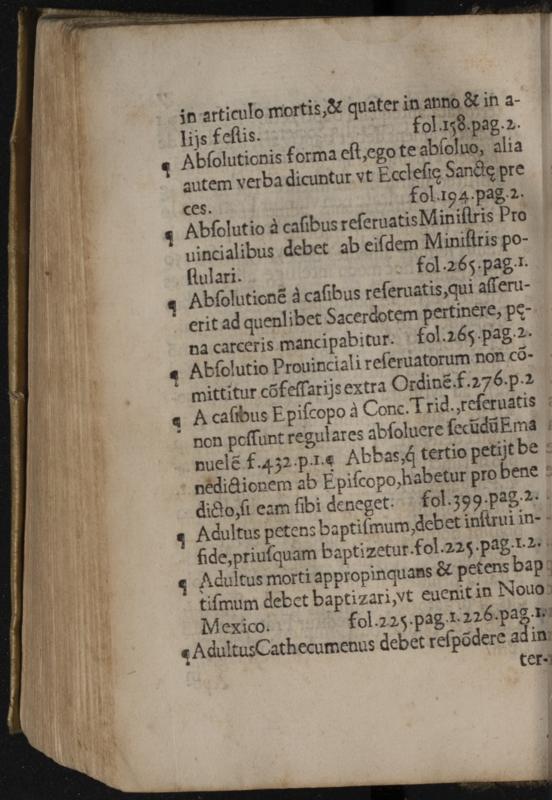 in articulo mortis,& quater in anno & in a-
lijs festis. fol.158.pag.2.
¶ Absolutionis forma est,ego te absoluo, alia
autem verba dicuntur vt Ecclesię Sanctę pre
ces. fol.194.pag.2.
¶ Absolutio à casibus reseruatis Ministris Pro
uincialibus debet ab eisdem Ministris po-
stulari. fol.265.pag.1.
¶ Absolutionē à casibus reseruatis,qui asseru-
erit ad quenlibet Sacerdotem pertinere, pę-
na carceris mancipabitur. fol.265.pag.2.
¶ Absolutio Prouinciali reseruatorum non cō-
mittitur cōfessarijs extra Ordinē.f.276.p.2
¶ A casibus Episcopo à Conc.Trid.,reseruatis
non possunt regulares absoluere secūdū Ema
nuelē f.432.p.1.¶ Abbas,q́ tertio petijt be
nedictionem ab Episcopo,habetur pro bene
dicto,si eam sibi deneget. fol.399.pag.2.
¶ Adultus petens baptismum,debet instrui in-
fide,priusquam baptizetur.fol.225.pag.1.2.
¶ Adultus morti appropinquans & petens bap
tismum debet baptizari,vt euenit in Nouo
Mexico. fol.225.pag.1.226.pag.1.
¶ Adultus Cathecumenus debet respōdere ad in
ter-